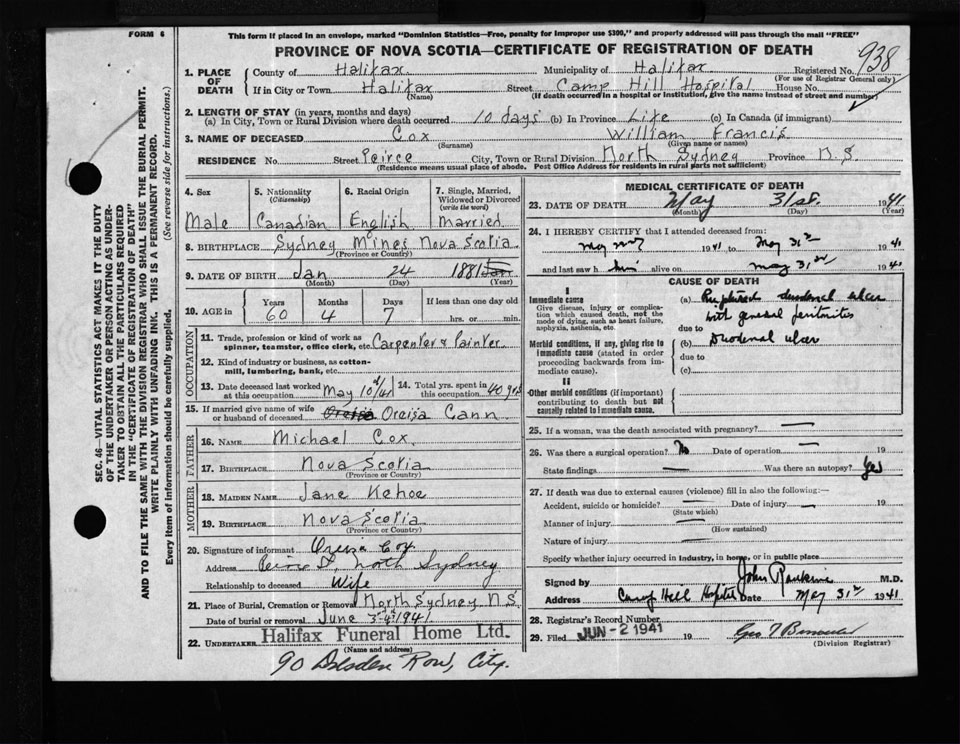 FORM 6
This form if placed in an envelope, marked "Dominion Statistics—Free, penalty for improper use $300," and properly addressed will pass through the mail "FREE"
PROVINCE OF NOVA SCOTIA—CERTIFICATE OF REGISTRATION OF DEATH
938
1. PLACE OF DEATH
County of Halifax Municipality of Halifax Registered No.
(For use of Registrar General only)
If in City or Town Halifax Street Camp Hill Hospital House No.
(Name) (If death occurred in a hospital or institution, give the name instead of street and number)
2. LENGTH OF STAY (in years, months and days)
(a) In City, Town or Rural Division where death occurred 10 days (b) In Province Life (c) In Canada (if immigrant)
3. NAME OF DECEASED Cox William Francis
(Surname) (Given name or names)
RESIDENCE No. Street Peirce City, Town or Rural Division North Sydney Province N.S.
(Residence means usual place of abode. Post Office Address for residents in rural parts not sufficient)
4. Sex Male
5. Nationality (Citizenship) Canadian
6. Racial Origin English
7. Single, Married, Widowed or Divorced (write the word) Married
8. BIRTHPLACE Sydney Mines Nova Scotia
(Province or Country)
9. DATE OF BIRTH Jan 24 1881
(Month) (Day) (Year)
10. AGE in Years Months Days If less than one day old
60 4 7 hrs. or min.
OCCUPATION
11. Trade, profession or kind of work as spinner, teamster, office clerk, etc. Carpenter & Painter
12. Kind of industry or business, as cotton-mill, lumbering, bank, etc.
13. Date deceased last worked at this occupation May 10th/41
14. Total yrs. spent in this occupation 40 yrs
15. If married give name of wife or husband of deceased Oreisa Oreisa Cann
FATHER
16. NAME Michael Cox
17. BIRTHPLACE Nova Scotia
(Province or Country)
MOTHER
18. MAIDEN NAME Jane Kehoe
19. BIRTHPLACE Nova Scotia
(Province or Country)
20. Signature of informant Oreisa Cox
Address North Sydney
Relationship to deceased Wife
21. Place of Burial, Cremation or Removal North Sydney N.S.
Date of burial or removal June 1941
22. UNDERTAKER Halifax Funeral Home Ltd.
(Name and address)
90 Dresden Row, City.
MEDICAL CERTIFICATE OF DEATH
23. DATE OF DEATH May 31st. 1941
(Month) (Day) (Year)
24. I HEREBY CERTIFY that I attended deceased from:
1941 to May 31st 1941
and last saw him alive on May 31st 1941
CAUSE OF DEATH
I
Immediate cause
Give disease, injury or complication which caused death, not the mode of dying, such as heart failure, asphyxia, asthenia, etc.
(a) Ruptured duodenal ulcer
with general peritonitis
due to
Morbid conditions, if any, giving rise to immediate cause (stated in order proceeding backwards from immediate cause).
(b) Duodenal ulcer
due to
(c)
II
Other morbid conditions (if important) contributing to death but not causally related to immediate cause.
25. If a woman, was the death associated with pregnancy? —
26. Was there a surgical operation? No Date of operation — 19
State findings — Was there an autopsy? Yes
27. If death was due to external causes (violence) fill in also the following:—
Accident, suicide or homicide? — Date of injury — 19
(State which)
Manner of injury —
(How sustained)
Nature of injury —
Specify whether injury occurred in industry, in home, or in public place
Signed by John Rankine M.D.
Address Camp Hill Hospital Date May 31st 1941
28. Registrar's Record Number
29. Filed JUN - 2 1941 19
(Division Registrar)
SEC. 46—VITAL STATISTICS ACT MAKES IT THE DUTY
OF THE UNDERTAKER OR PERSON ACTING AS UNDER-
TAKER TO OBTAIN ALL THE PARTICULARS REQUIRED
IN THE "CERTIFICATE OF REGISTRATION OF DEATH"
AND TO FILE THE SAME WITH THE DIVISION REGISTRAR WHO SHALL ISSUE THE BURIAL PERMIT.
WRITE PLAINLY WITH UNFADING INK. THIS IS A PERMANENT RECORD.
Every item of information should be carefully supplied. (See reverse side for instructions.)